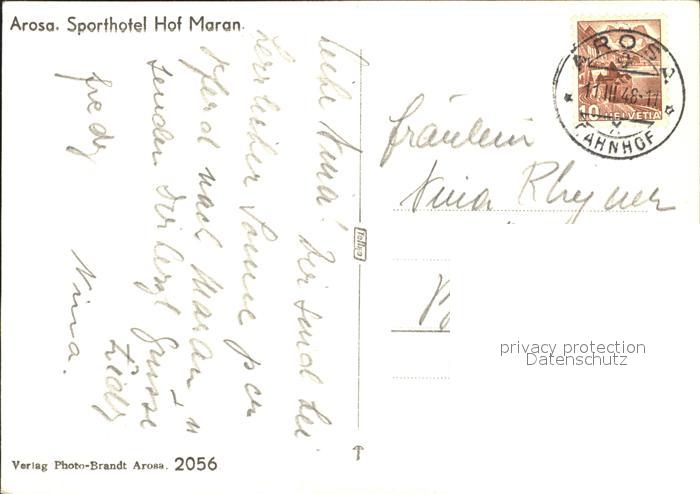 Arosa. Sporthotel Hof Maran.
Liebe Nina! Wir sind bei
herrlicher Sonne per
Pferd nach Maran u
senden Dir herzl Grüsse
Fredy
Nina.
Fräulein
Nina Rhyner
AROSA
11.III.48-17
BAHNHOF
10 HELVETIA
privacy protection
Datenschutz
Verlag Photo-Brandt Arosa. 2056